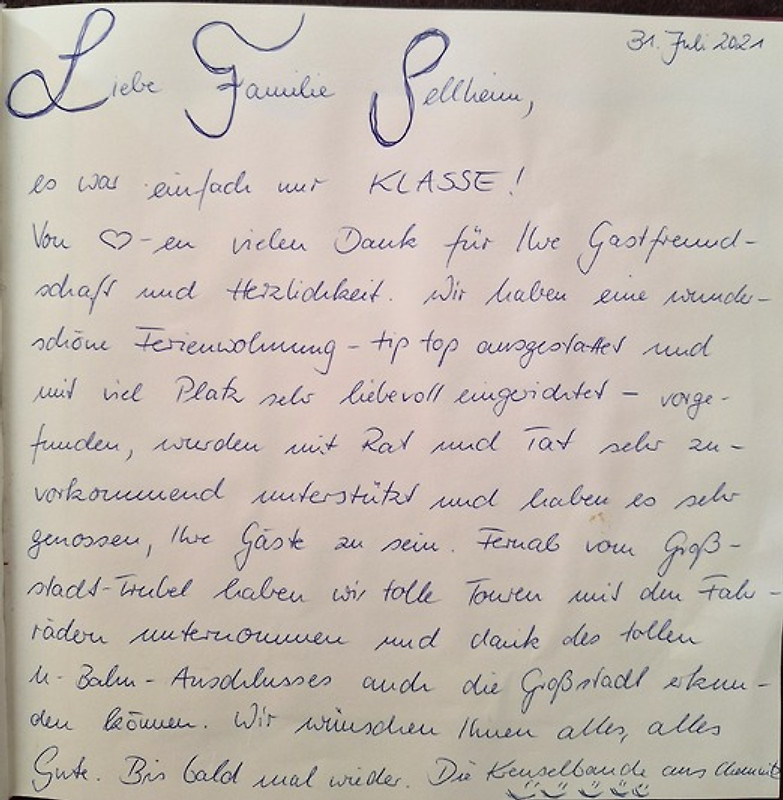 31. Juli 2021
Liebe Familie Sellheim,
es war einfach nur KLASSE!
Von ♡-en vielen Dank für Ihre Gastfreund-
schaft und Herzlichkeit. Wir haben eine wunder-
schöne Ferienwohnung - tip top ausgestattet und
mit viel Platz sehr liebevoll eingerichtet - vorge-
funden, wurden mit Rat und Tat sehr zu-
vorkommend unterstützt und haben es sehr
genossen, Ihre Gäste zu sein. Fernab vom Groß-
stadt-Trubel haben wir tolle Touren mit den Fahr-
rädern unternommen und dank des tollen
U-Bahn-Anschlusses auch die Großstadt erkun-
den können. Wir wünschen Ihnen alles, alles
Gute. Bis bald mal wieder. Die Kenselbande aus Chemnitz